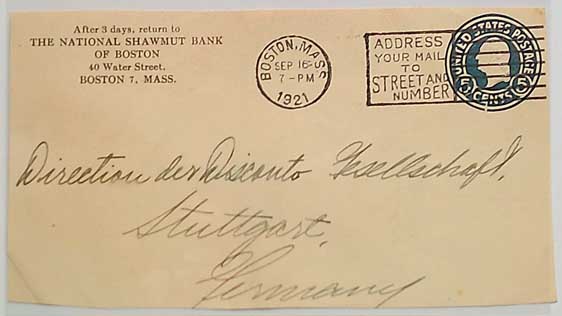 After 3 days, return to
THE NATIONAL SHAWMUT BANK
OF BOSTON
40 Water Street.
BOSTON 7, MASS.
BOSTON, MASS.
SEP 16
7-PM
1921
ADDRESS
YOUR MAIL
TO
STREET AND
NUMBER
UNITED STATES POSTAGE
5 CENTS 5
Direction der Disconto Gesellschaft,
Stuttgart,
Germany